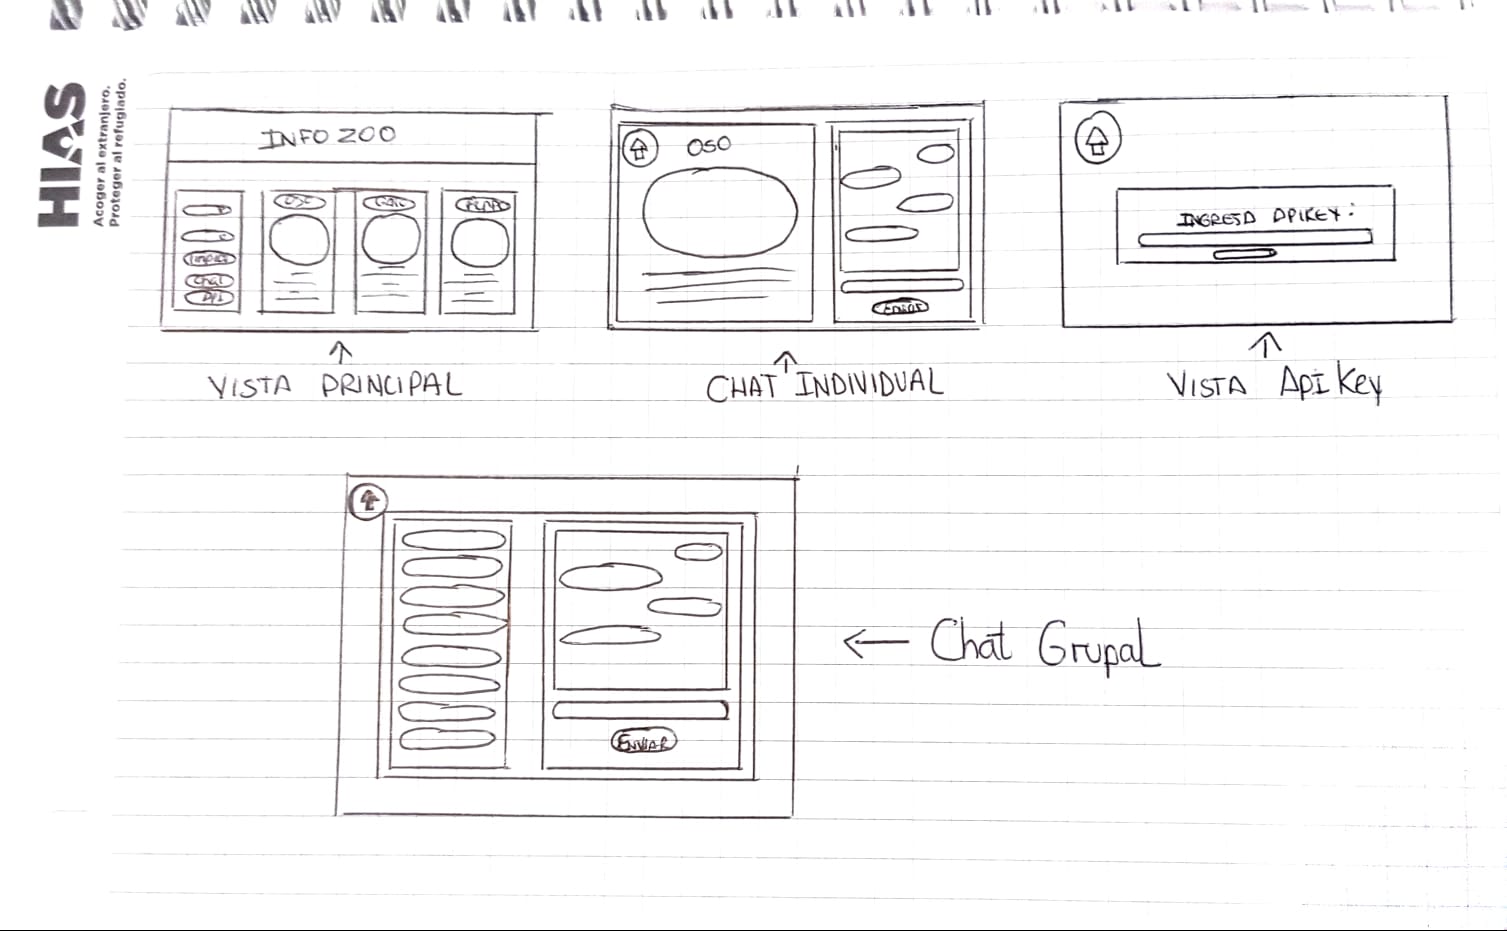 HIAS
Acoger al extranjero.
Proteger al refugiado.
INFO ZOO
OSO
Chat
VISTA PRINCIPAL
OSO
ENVIAR
CHAT INDIVIDUAL
INGRESA APIKEY:
VISTA ApI Key
ENVIAR
Chat Grupal